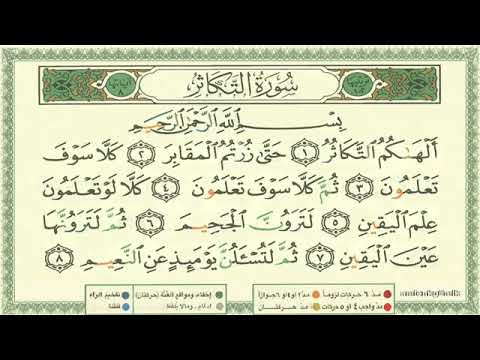 سُورَةُ التَّكَاثُرِ
بِسْمِ ٱللَّهِ ٱلرَّحْمَٰنِ ٱلرَّحِيمِ
أَلْهَىٰكُمُ ٱلتَّكَاثُرُ ١ حَتَّىٰ زُرْتُمُ ٱلْمَقَابِرَ ٢ كَلَّا سَوْفَ
تَعْلَمُونَ ٣ ثُمَّ كَلَّا سَوْفَ تَعْلَمُونَ ٤ كَلَّا لَوْ تَعْلَمُونَ
عِلْمَ ٱلْيَقِينِ ٥ لَتَرَوُنَّ ٱلْجَحِيمَ ٦ ثُمَّ لَتَرَوُنَّهَا
عَيْنَ ٱلْيَقِينِ ٧ ثُمَّ لَتُسْـَٔلُنَّ يَوْمَئِذٍ عَنِ ٱلنَّعِيمِ ٨
مدّ ٦ حركات لزوماً مدّ ٢ أو ٤ أو ٦ جوازاً إخفاء ومواقع الغنّة (حركتان) تفخيم الراء
مدّ واجب ٤ أو ٥ حركات مدّ حركتان إدغام ، وما لا يلفظ قلقلة